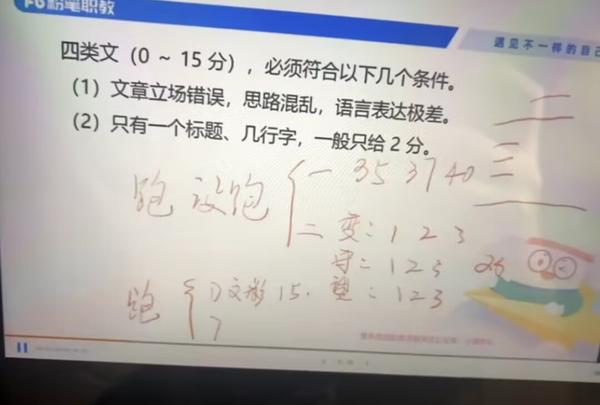 粉笔职教
遇见不一样的自己
四类文（0 ~ 15 分），必须符合以下几个条件。
（1）文章立场错误，思路混乱，语言表达极差。
（2）只有一个标题、几行字，一般只给 2 分。
二
跑 没跑 一 35 37 40 三
二 变：1 2 3
守：1 2 3
跑 1) 文彩 15. 1 2 3